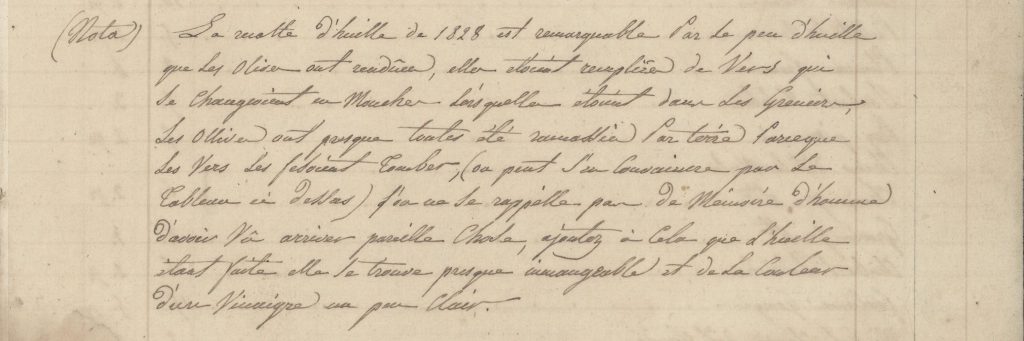 (Nota) La recolte d'huille de 1828 est remarquable Par Le peu d'huille
que Les Olives ont rendües, elles etoient remplies de Vers qui
se changeoient en Mouches Lorsquelles étoient dans Les Greniers,
Les Ollives ont presque toutes été ramassées Par terre Parceque
Les Vers Les fesoient Tomber, (on peut s'en Convaincre par Le
Tableau ci dessus) l'on ne se rappelle pas de Mémoire d'homme
d'avoir Vû arriver pareille Chose, ajoutez à Cela que L'huille
étant faite elle se trouve presque immangeable et de La Couleur
d'un Vinaigre un peu Clair.